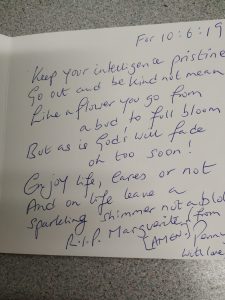 For 10:6:19
Keep your intelligence pristine
Go out and be kind not mean
Like a flower you go from
a bud to full bloom
But as is God's will fade
oh too soon!
Enjoy life, cares or not
And on life leave a
sparkling shimmer not a blot
R.I.P. Marguerite! from
(AMEN.)
With love